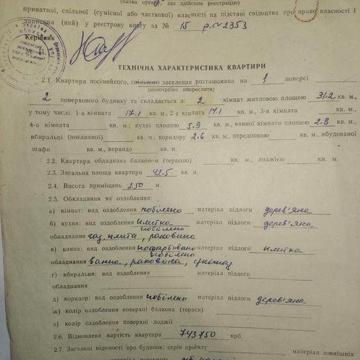 приватної, спільної (сумісної або часткової) власності на підставі свідоцтва про право власності і
у реєстрову книгу за № 15 р. № 2353
Керівник
ТЕХНІЧНА ХАРАКТЕРИСТИКА КВАРТИРИ
2.1. Квартира посімейного, спільного заселення розташована на 1 поверсі
(непотрібне закреслити)
2 поверхового будинку та складається з 2 кімнат житловою площею 31.2 кв. м,
у тому числі: 1-а кімната 17.1 кв. м, 2-а кімната 14.1 кв. м, 3-я кімната кв. м,
4-а кімната кв. м, кухні площею 5.9 кв. м, ванної кімнати площею 2.8 кв. м,
вбиральні (поєднаної) кв. м, коридору 2.6 кв. м, передпокою кв. м, вбудованої
шафи кв. м, веранди кв. м
2.2. Квартира обладнана балконом (терасою) кв. м, лоджією кв. м.
2.3. Загальна площа квартири 42.5 кв. м.
2.4. Висота приміщень 2.50 м.
2.5. Обладнання як оздоблення:
а) кімнат: вид оздоблення побілено матеріал підлоги дерев'яна
б) кухня: вид оздоблення плитка побілено матеріал підлоги дерев'яна,
обладнання газ. плита, раковина
в) ванна: вид оздоблення пофарбовано побілено матеріал підлоги плитка
обладнання ванна, раковина,
г) вбиральня: вид оздоблення матеріал підлоги
обладнання
д) коридор: вид оздоблення побілено матеріал підлоги дерев'яна.
е) колір оздоблення балкону (тераси)
є) колір оздоблення поверхні лоджії
2.6. Відновлена вартість квартири 743750 крб.
2.7. Загальні відомості про будинок: серія проекту
матеріал зовнішніх